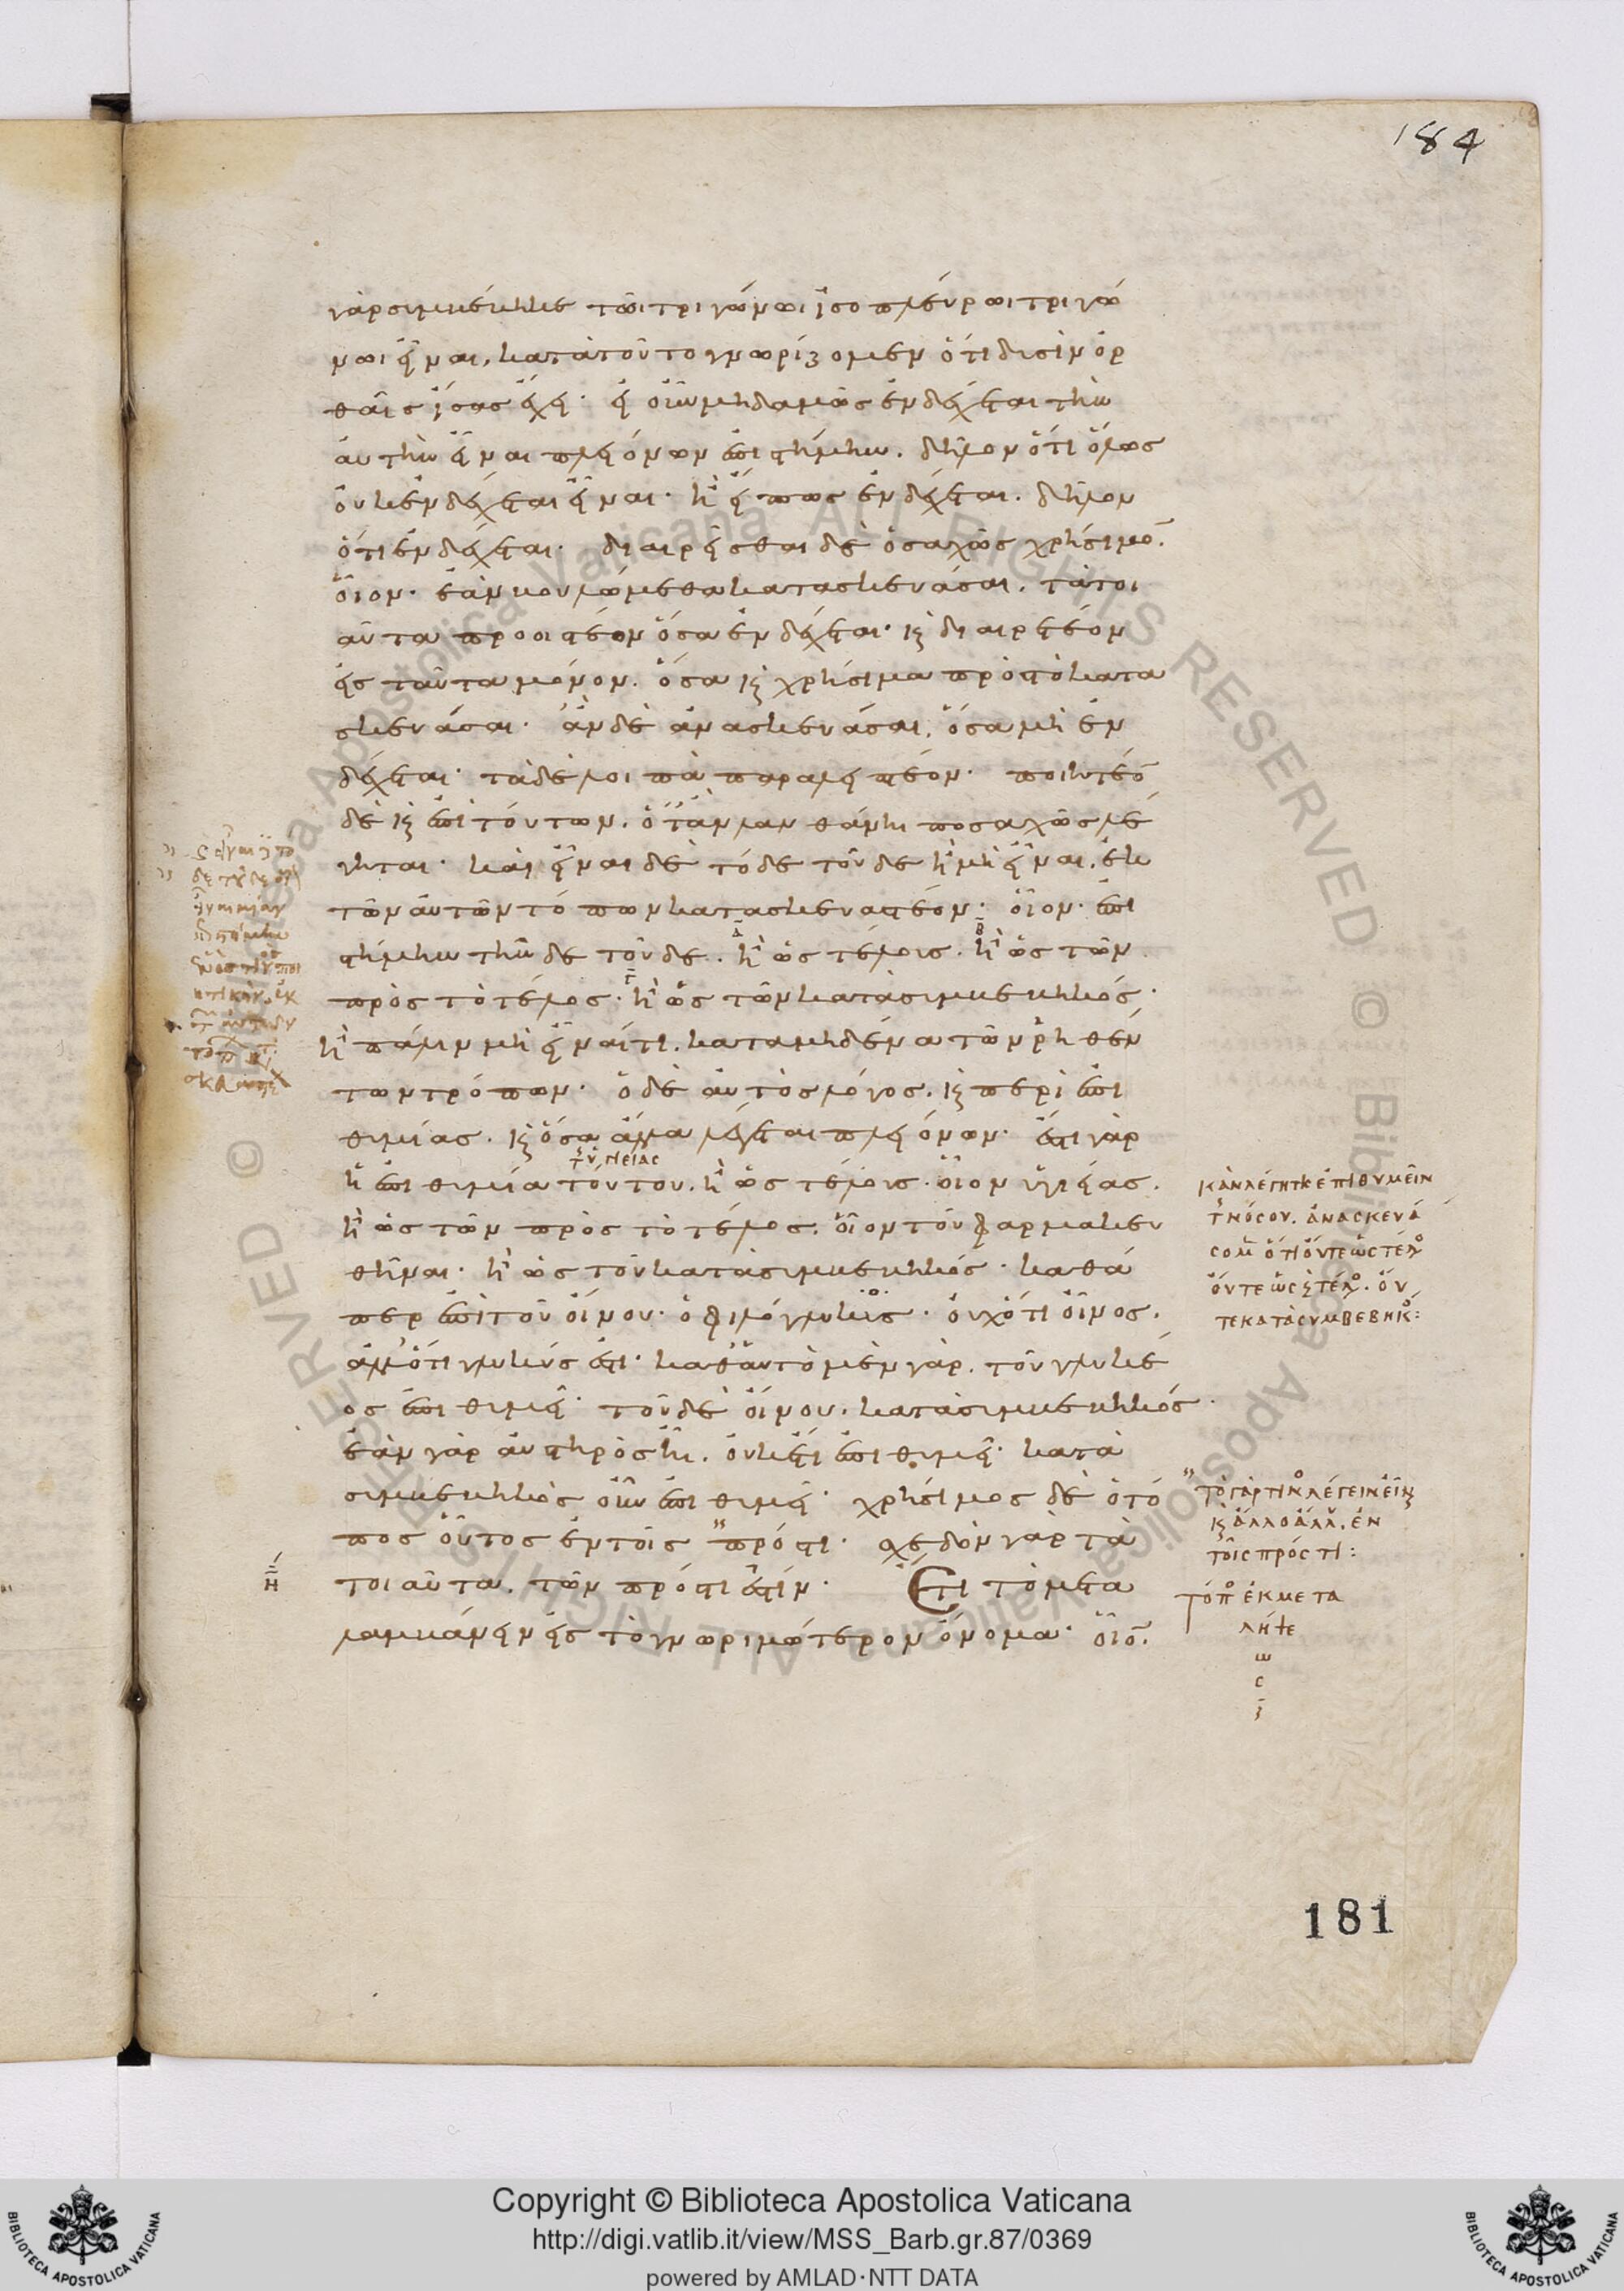 184
γὰρ συμβέβηκε τῶι τριγώνωι ἰσοπλεύρωι τριγώ
νωι εἶναι, κατὰ τοῦτο γνωρίζομεν ὅτι δυσὶν ὀρ
θαῖς ἴσας ἔχει· εἰ οὖν μηδαμῶς ἐνδέχεται τὴν
αὐτὴν εἶναι πλειόνων ἐπιστήμην. δῆλον ὅτι ὅλως
οὐκ ἐνδέχεται εἶναι· ἢ εἴ πως ἐνδέχεται. δῆλον
ὅτι ἐνδέχεται· διαιρεῖσθαι δὲ ὁσαχῶς χρήσιμο̅.
οἷον· ἐὰν βουλώμεθα κατασκευάσαι. τὰ τοι
αῦτα προοιστέον ὅσα ἐνδέχεται· κ διαιρετέον
εἰς ταῦτα μόνον. ὅσα κ χρήσιμα πρὸς τὸ κατα
σκευάσαι· ἂν δὲ ἀνασκευάσαι, ὅσα μὴ ἐν
δέχεται· τὰ δὲ λοιπὰ παραλειπτέον· ποιητέο̅
δὲ κ ἐπὶ τούτων. ὅταν λανθάνηι ποσαχῶς λέ
γηται· καὶ εἶναι δὲ τόδε τοῦδε ἢ μὴ εἶναι. ἐκ
τῶν αὐτῶν τόπων κατασκευαστέον· οἷον· ἐπι
στήμην τήνδε τοῦδε. ἢ ὡς τέλους. ἢ ὡς τῶν
πρὸς τὸ τέλος· ἢ ὡς τῶν κατὰ συμβεβηκός·
ἢ πάλιν μὴ εἶναί τι. κατὰ μηδένα τῶν ῥηθέν
των τρόπων· ὁ δὲ αὐτὸς λόγος. κ περὶ ἐπι
θυμίας. κ ὅσα ἄλλα λέγεται πλειόνων· ἔστι γὰρ
ἡ ἐπιθυμία τούτου. ἢ ὡς τέλους· οἷον ὑγιείας.
ἢ ὡς τῶν πρὸς τὸ τέλος. οἷον τοῦ φαρμακευ
θῆναι· ἢ ὡς τοῦ κατὰ συμβεβηκός· καθά
περ ἐπὶ τοῦ οἴνου· ὁ φιλόγλυκυς· οὐχ ὅτι οἶνος.
ἀλλ' ὅτι γλυκύς ἐστι· καθ' αὑτὸ μὲν γὰρ. τοῦ γλυκέ
ος ἐπιθυμεῖ· τοῦ δὲ οἴνου. κατὰ συμβεβηκός·
ἐὰν γὰρ αὐστηρὸς ἦι. οὐκέτι ἐπιθυμεῖ· κατὰ
συμβεβηκὸς οὖν ἐπιθυμεῖ· χρήσιμος δὲ ὁ τό
πος οὗτος ἐν τοῖς πρός τι· σχεδὸν γὰρ τὰ
τοιαῦτα. τῶν πρός τι ἐστίν· Ἔτι τὸ μετα
λαμβάνειν εἰς τὸ γνωριμώτερον ὄνομα· οἷο̅.
ΚΑΝ ΛΕΓΗΤΑΙ ἐΠΙΘΥΜΕῖΝ
ΝόCΟΥ. ἀΝΑCΚΕΥά
CΟΜ ὅΤΙ ΟὔΤΕ ὡC ΤέΛ
ΟὔΤΕ ὡC ΤέΛ. Οὔ
ΤΕ ΚΑΤὰ CΥΜΒΕΒΗΚ:
Τὸ ΓὰΡ ΤΙΝΟC ΛέΓΕΙΝ ΕἶΝ
ἄΛΛΟ ἄΛΛ. ἐΝ
ΤΟῖC ΠΡόC ΤΙ:
ΤόΠ ἐΚ ΜΕΤΑ
ΛήΨΕ
ω
C
:
181
Copyright © Biblioteca Apostolica Vaticana
http://digi.vatlib.it/view/MSS_Barb.gr.87/0369
powered by AMLAD·NTT DATA
BIBLIOTECA APOSTOLICA VATICANA
BIBLIOTECA APOSTOLICA VATICANA